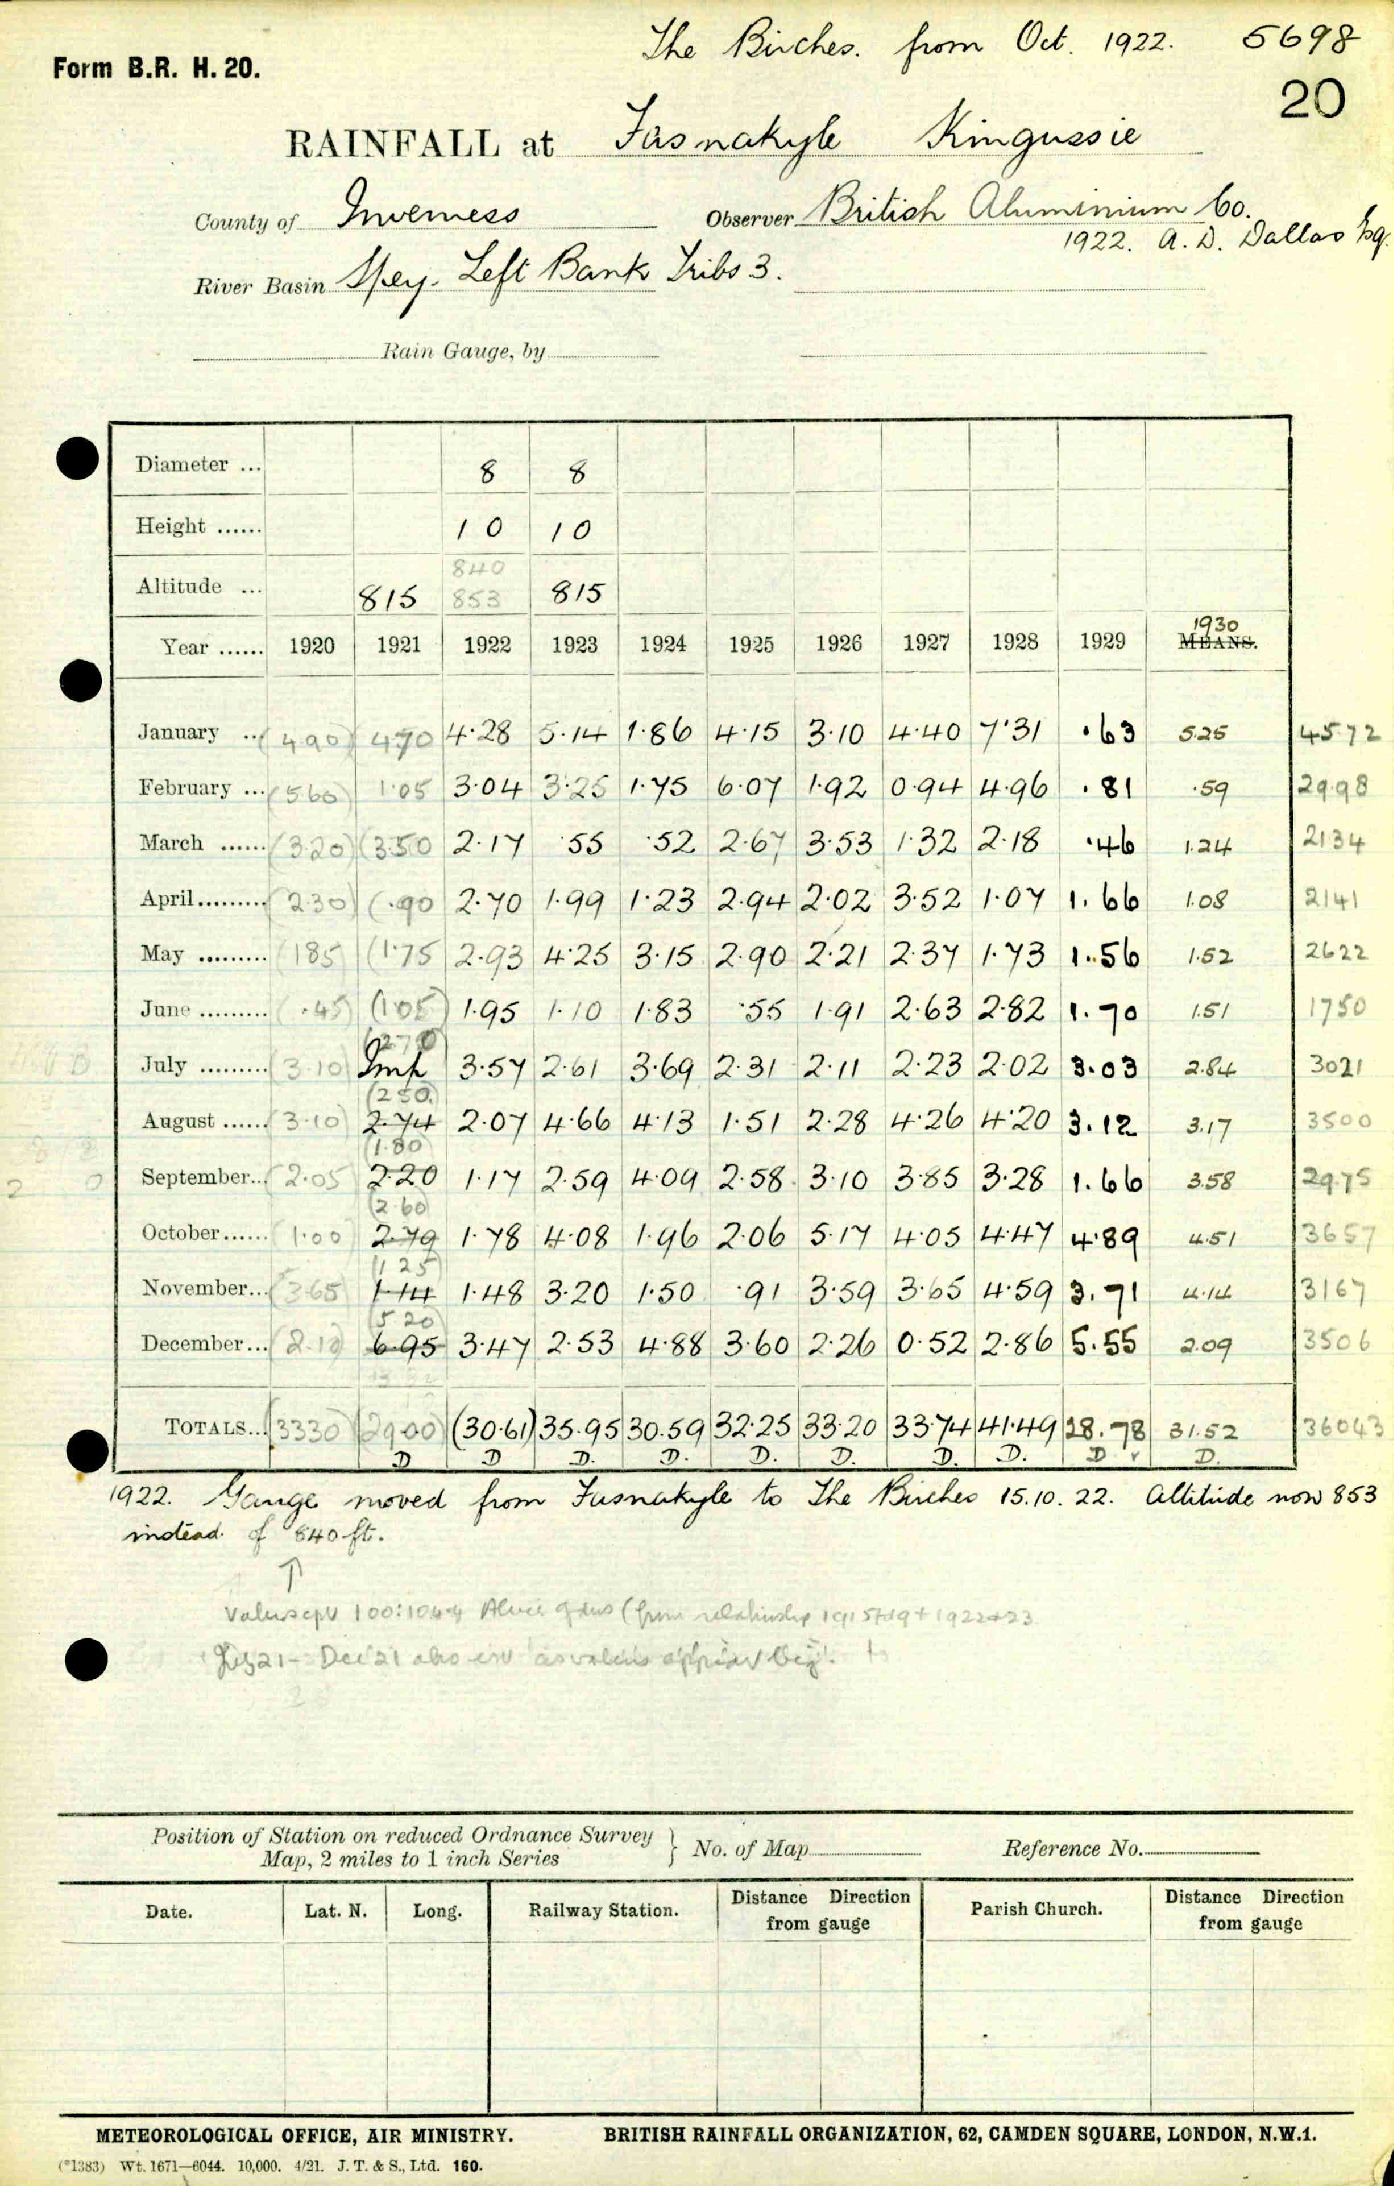 The Birches. from Oct. 1922. 5698
Form B.R. H. 20.
20
RAINFALL at Fasnakyle Kingussie
County of Inverness Observer British Aluminium Co.
1922. A. D. Dallas Esq.
River Basin Spey. Left Bank Tribs 3.
Rain Gauge, by
Diameter ... 8 8
Height ...... 10 10
840
Altitude ... 815 853 815
1930
Year ...... 1920 1921 1922 1923 1924 1925 1926 1927 1928 1929 MEANS.
January ... (490) 470 4.28 5.14 1.86 4.15 3.10 4.40 7.31 .63 5.25 4572
February ... (560) 1.05 3.04 3.25 1.75 6.07 1.92 0.94 4.96 .81 .59 2998
March ...... (3.20) (350 2.17 .55 .52 2.67 3.53 1.32 2.18 .46 1.24 2134
April ......... (2.30) (.90 2.70 1.99 1.23 2.94 2.02 3.52 1.07 1.66 1.08 2141
May ......... (185) (1.75 2.93 4.25 3.15 2.90 2.21 2.37 1.73 1.56 1.52 2622
June ......... (.45) (1.05) 1.95 1.10 1.83 .55 1.91 2.63 2.82 1.70 1.51 1750
(270)
July ......... (3.10) Imp 3.57 2.61 3.69 2.31 2.11 2.23 2.02 3.03 2.84 3021
(250)
August ...... (3.10) 2.74 2.07 4.66 4.13 1.51 2.28 4.26 4.20 3.12 3.17 3500
(1.80)
September... (2.05) 2.20 1.17 2.59 4.09 2.58 3.10 3.85 3.28 1.66 3.58 2975
(2 60)
October...... (1.00) 2.79 1.78 4.08 1.96 2.06 5.17 4.05 4.47 4.89 4.51 3657
(1 25)
November... (3.65) 1.14 1.48 3.20 1.50 .91 3.59 3.65 4.59 3.71 4.14 3167
(5 20)
December... (2.10) 6.95 3.47 2.53 4.88 3.60 2.26 0.52 2.86 5.55 2.09 3506
TOTALS... (3330) (2900) (30.61) 35.95 30.59 32.25 33.20 33.74 41.49 28.78 31.52 36043
D D D. D. D. D. D. D. D D.
1922. Gauge moved from Fasnakyle to The Birches 15.10.22. Altitude now 853
instead of 840 ft.
↑
100:104.4 (from relationship 1922+23
July 21 - Dec 21 also values appear
Position of Station on reduced Ordnance Survey
Map, 2 miles to 1 inch Series } No. of Map Reference No.
Date. Lat. N. Long. Railway Station. Distance Direction from gauge Parish Church. Distance Direction from gauge
METEOROLOGICAL OFFICE, AIR MINISTRY. BRITISH RAINFALL ORGANIZATION, 62, CAMDEN SQUARE, LONDON, N.W.1.
(*1383) Wt. 1671—6044. 10,000. 4/21. J. T. & S., Ltd. 160.